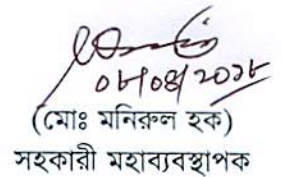 ০৮/০৪/২০১৮
(মোঃ মনিরুল হক)
সহকারী মহাব্যবস্থাপক